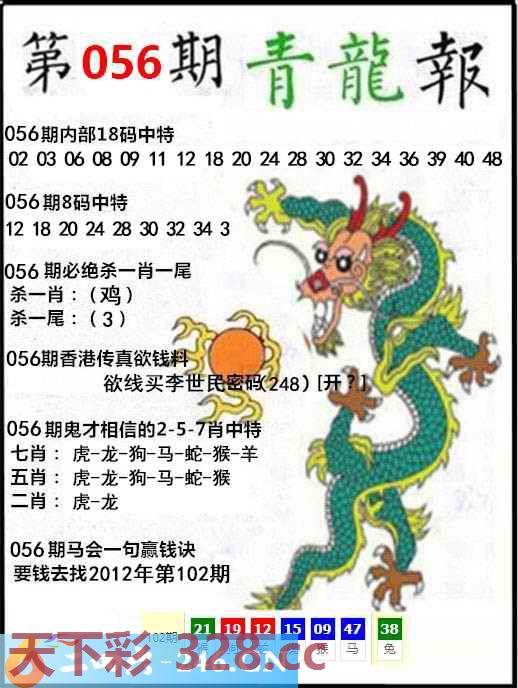 第056期 青龍報
056期内部18码中特
02 03 06 08 09 11 12 18 20 24 28 30 32 34 36 39 40 48
056期8码中特
12 18 20 24 28 30 32 34 3
056期必绝杀一肖一尾
杀一肖：(鸡)
杀一尾：(3)
056期香港传真欲钱料
欲线买李世民密码(248) [开?]
056期鬼才相信的2-5-7肖中特
七肖：虎-龙-狗-马-蛇-猴-羊
五肖：虎-龙-狗-马-蛇-猴
二肖：虎-龙
056期马会一句赢钱诀
要钱去找2012年第102期
102期 21 19 12 15 09 47 38
猴 马 兔
天下彩-328.cc